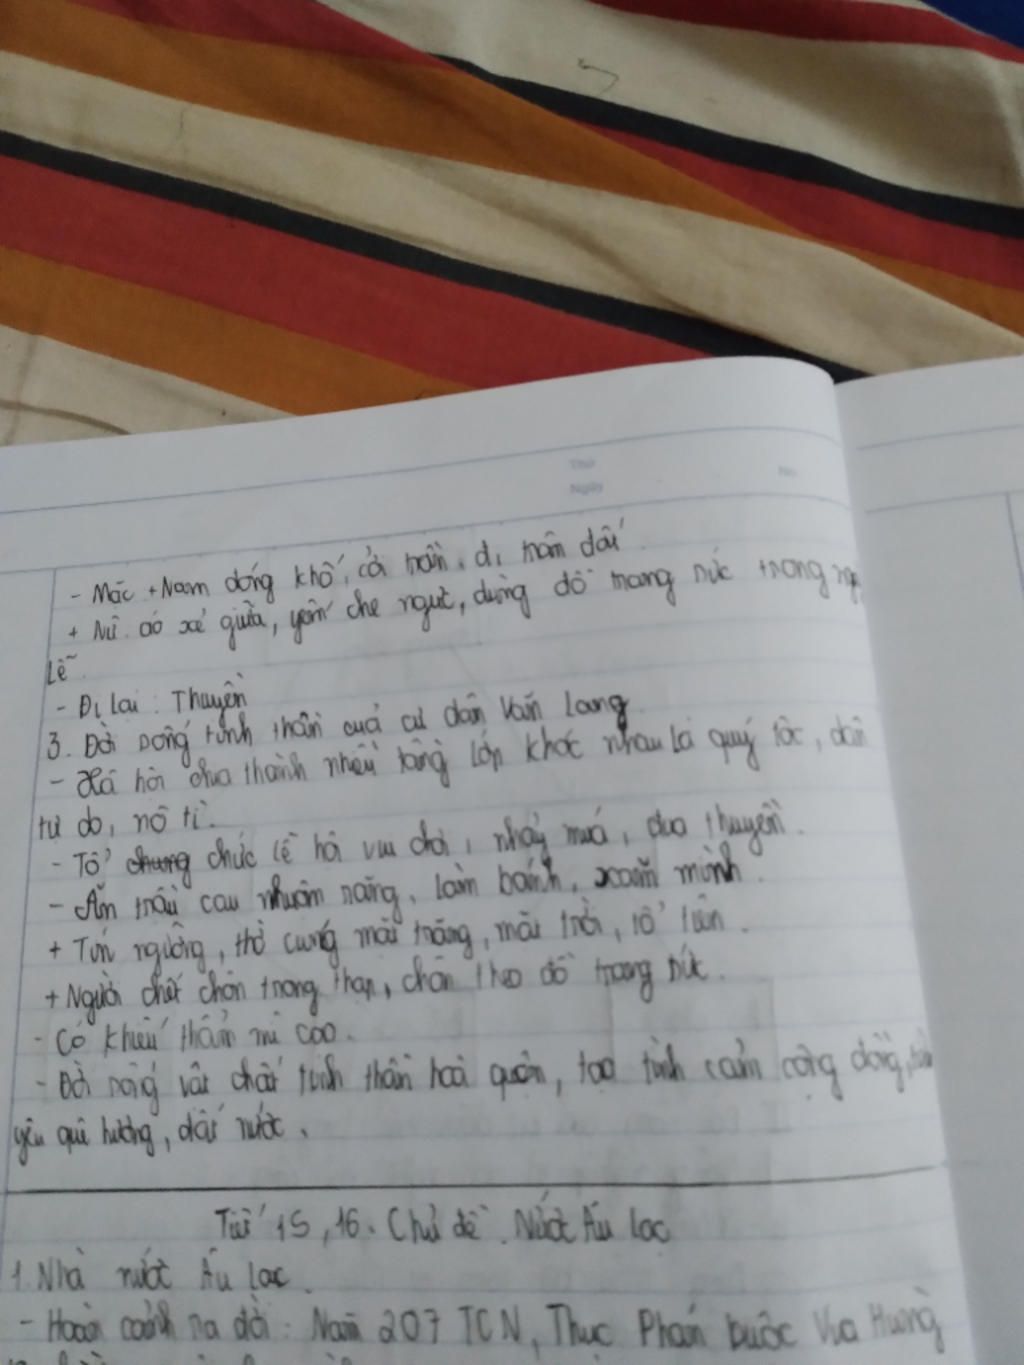 Thứ
Ngày
No.
- Mặc + Nam đóng khố, cởi trần, đi chân đất
+ Nữ áo xẻ giữa, yếm che ngực, dùng đồ trang sức trong
Lễ.
- Đi lại: Thuyền
3. Đời sống tinh thần cuả cư dân Văn Lang
- Xã hội chia thành nhiều tầng lớp khác nhau là quý tộc, dân
tự do, nô tì.
- Tổ chức lễ hội vui chơi, nhảy múa, đua thuyền.
- Ăn trầu cau nhuộm răng, làm bánh, xăm mình.
+ Tín ngưỡng, thờ cúng mặt trăng, mặt trời, tổ tiên.
+ Người chết chôn trong thạp, chôn theo đồ trang sức.
- Có khiếu thẩm mĩ cao.
- Đời sống vật chất tinh thần hoà quện, tạo tình cảm cộng đồng,
yêu quê hương, đất nước.
Tiết 15, 16. Chủ đề. Nước Âu Lạc
1. Nhà nước Âu Lạc.
- Hoàn cảnh ra đời: Năm 207 TCN, Thục Phán buộc Vua Hùng